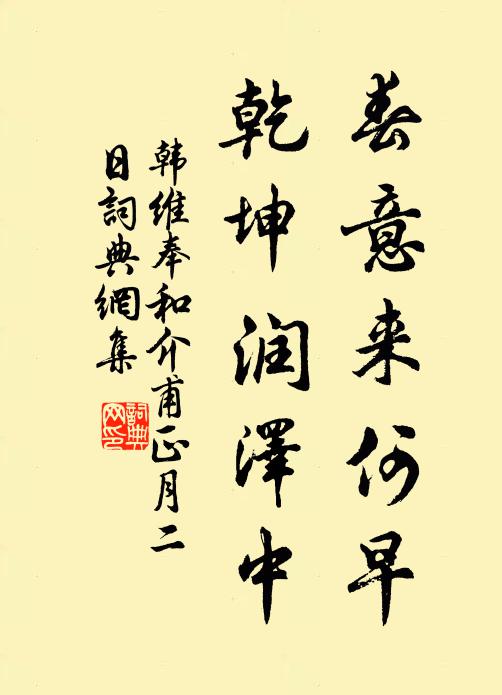 春意来何早
乾坤润澤中
韩维奉和介甫正月二
日詞典網集
詞典
网印